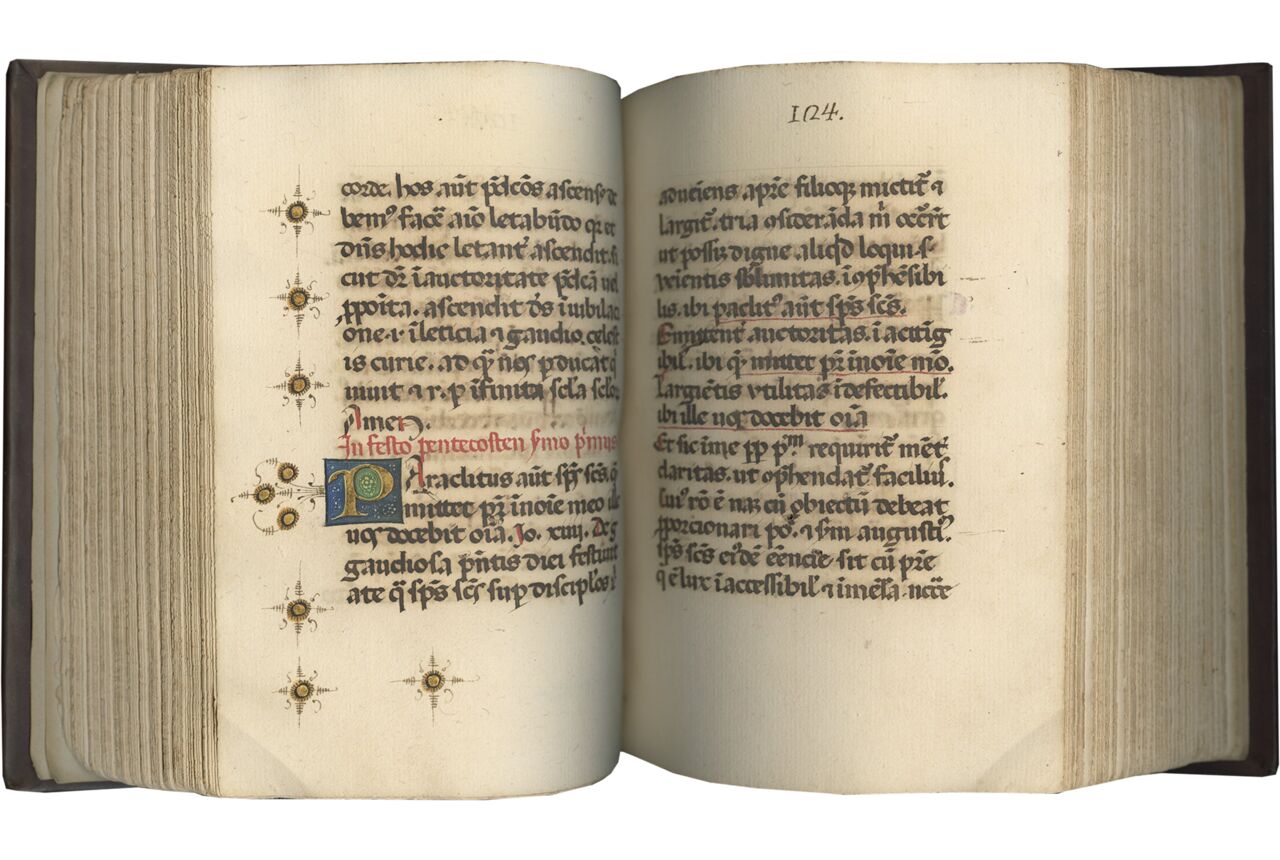 corde. hos aūt p̄dcōs ascensꝰ de
bemꝰ facē aīo letabūdo qꝛ et
dn̄s hodie letant᷑ ascendit. si
cut dꝛ ī auctoritate p̄dcā uel
ꝓpoīta. ascendit dꝰs ī iubilac
one .i. ī leticia ⁊ gaudio. celest
is curie. ad qꝫ nos ꝑducat qͥ
uiuit ⁊ r. ꝑ īfinita scl̄a scl̄oꝝ
Amen.
In festo pentecosten ẜmo pͥmus
PAraclitus aūt sp̄s sc̄s. q̄
mittet pr̄ ī noīe meo ille
uos docebit oīa. Jo. xiiij. De g
gaudiosa p̄ntis diei festiuit
ate qͣ sp̄s sc̄s suꝑ discipl̓os
124.
aduēiens a pr̄e filioqꝫ mictit᷑ ⁊
largit᷑. tria ꝯsiderāda m̄ occ̄rr̄t
ut possīꝰ digne aliqͥd loqui.
veīentis sb̓limitas. īꝯp̄hēsibi
lis. ibi paclitꝰ aūt sp̄s sc̄s.
Emittent᷑ auctoritas. ī actīg
ibil̓. ibi q̄ mittet pr̄ ī noīe mō.
Largiētis vtilitas īdefectibil̓.
ibi ille uos docebit oīa
Et sic ī me ꝑp pͫ requirit᷑ mēt᷑
claritas. ut ꝯp̄hendat᷑ faciliꝰ.
cuiꝰ rō ē naꝫ cū obiectū debeat
ꝓporcionari poͣ. ⁊ ẜm augustī.
ip̄s sc̄s eiꝰdē eēncie sit cū pr̄e
q ē lux īaccessibil̓ ⁊ īmēsa